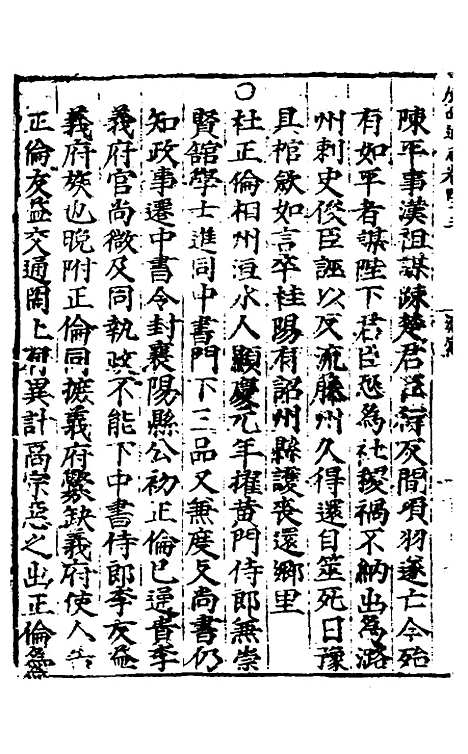 陳平事漢祖謀疎楚君臣行反間項羽遂亡今殆
有如平者謀陛下君臣恐為社稷禍不納出為潞
州刺史俊臣誣以反流藤州久得還自筮死日豫
具棺歛如言卒桂陽有詔州縣護喪還鄉里
○杜正倫相州洹水人顯慶元年擢黃門侍郎兼崇
賢舘學士進同中書門下三品又兼度支尚書仍
知政事遷中書令封襄陽縣公初正倫已通貴李
義府官尚微及同執政不能下中書侍郎李友益
義府族也晚附正倫同摭義府釁缺義府使人告
正倫友益交通罔上有異計高宗惡之出正倫為